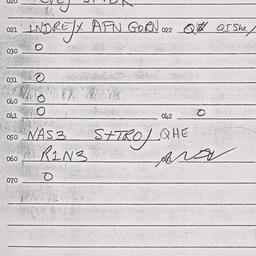 020
021 INDREJX AFN GORN 022
030 0
031 0
040 0
041 0 042 0
050 NAS3 S+TROJ QHE
060 R1N3
070 0